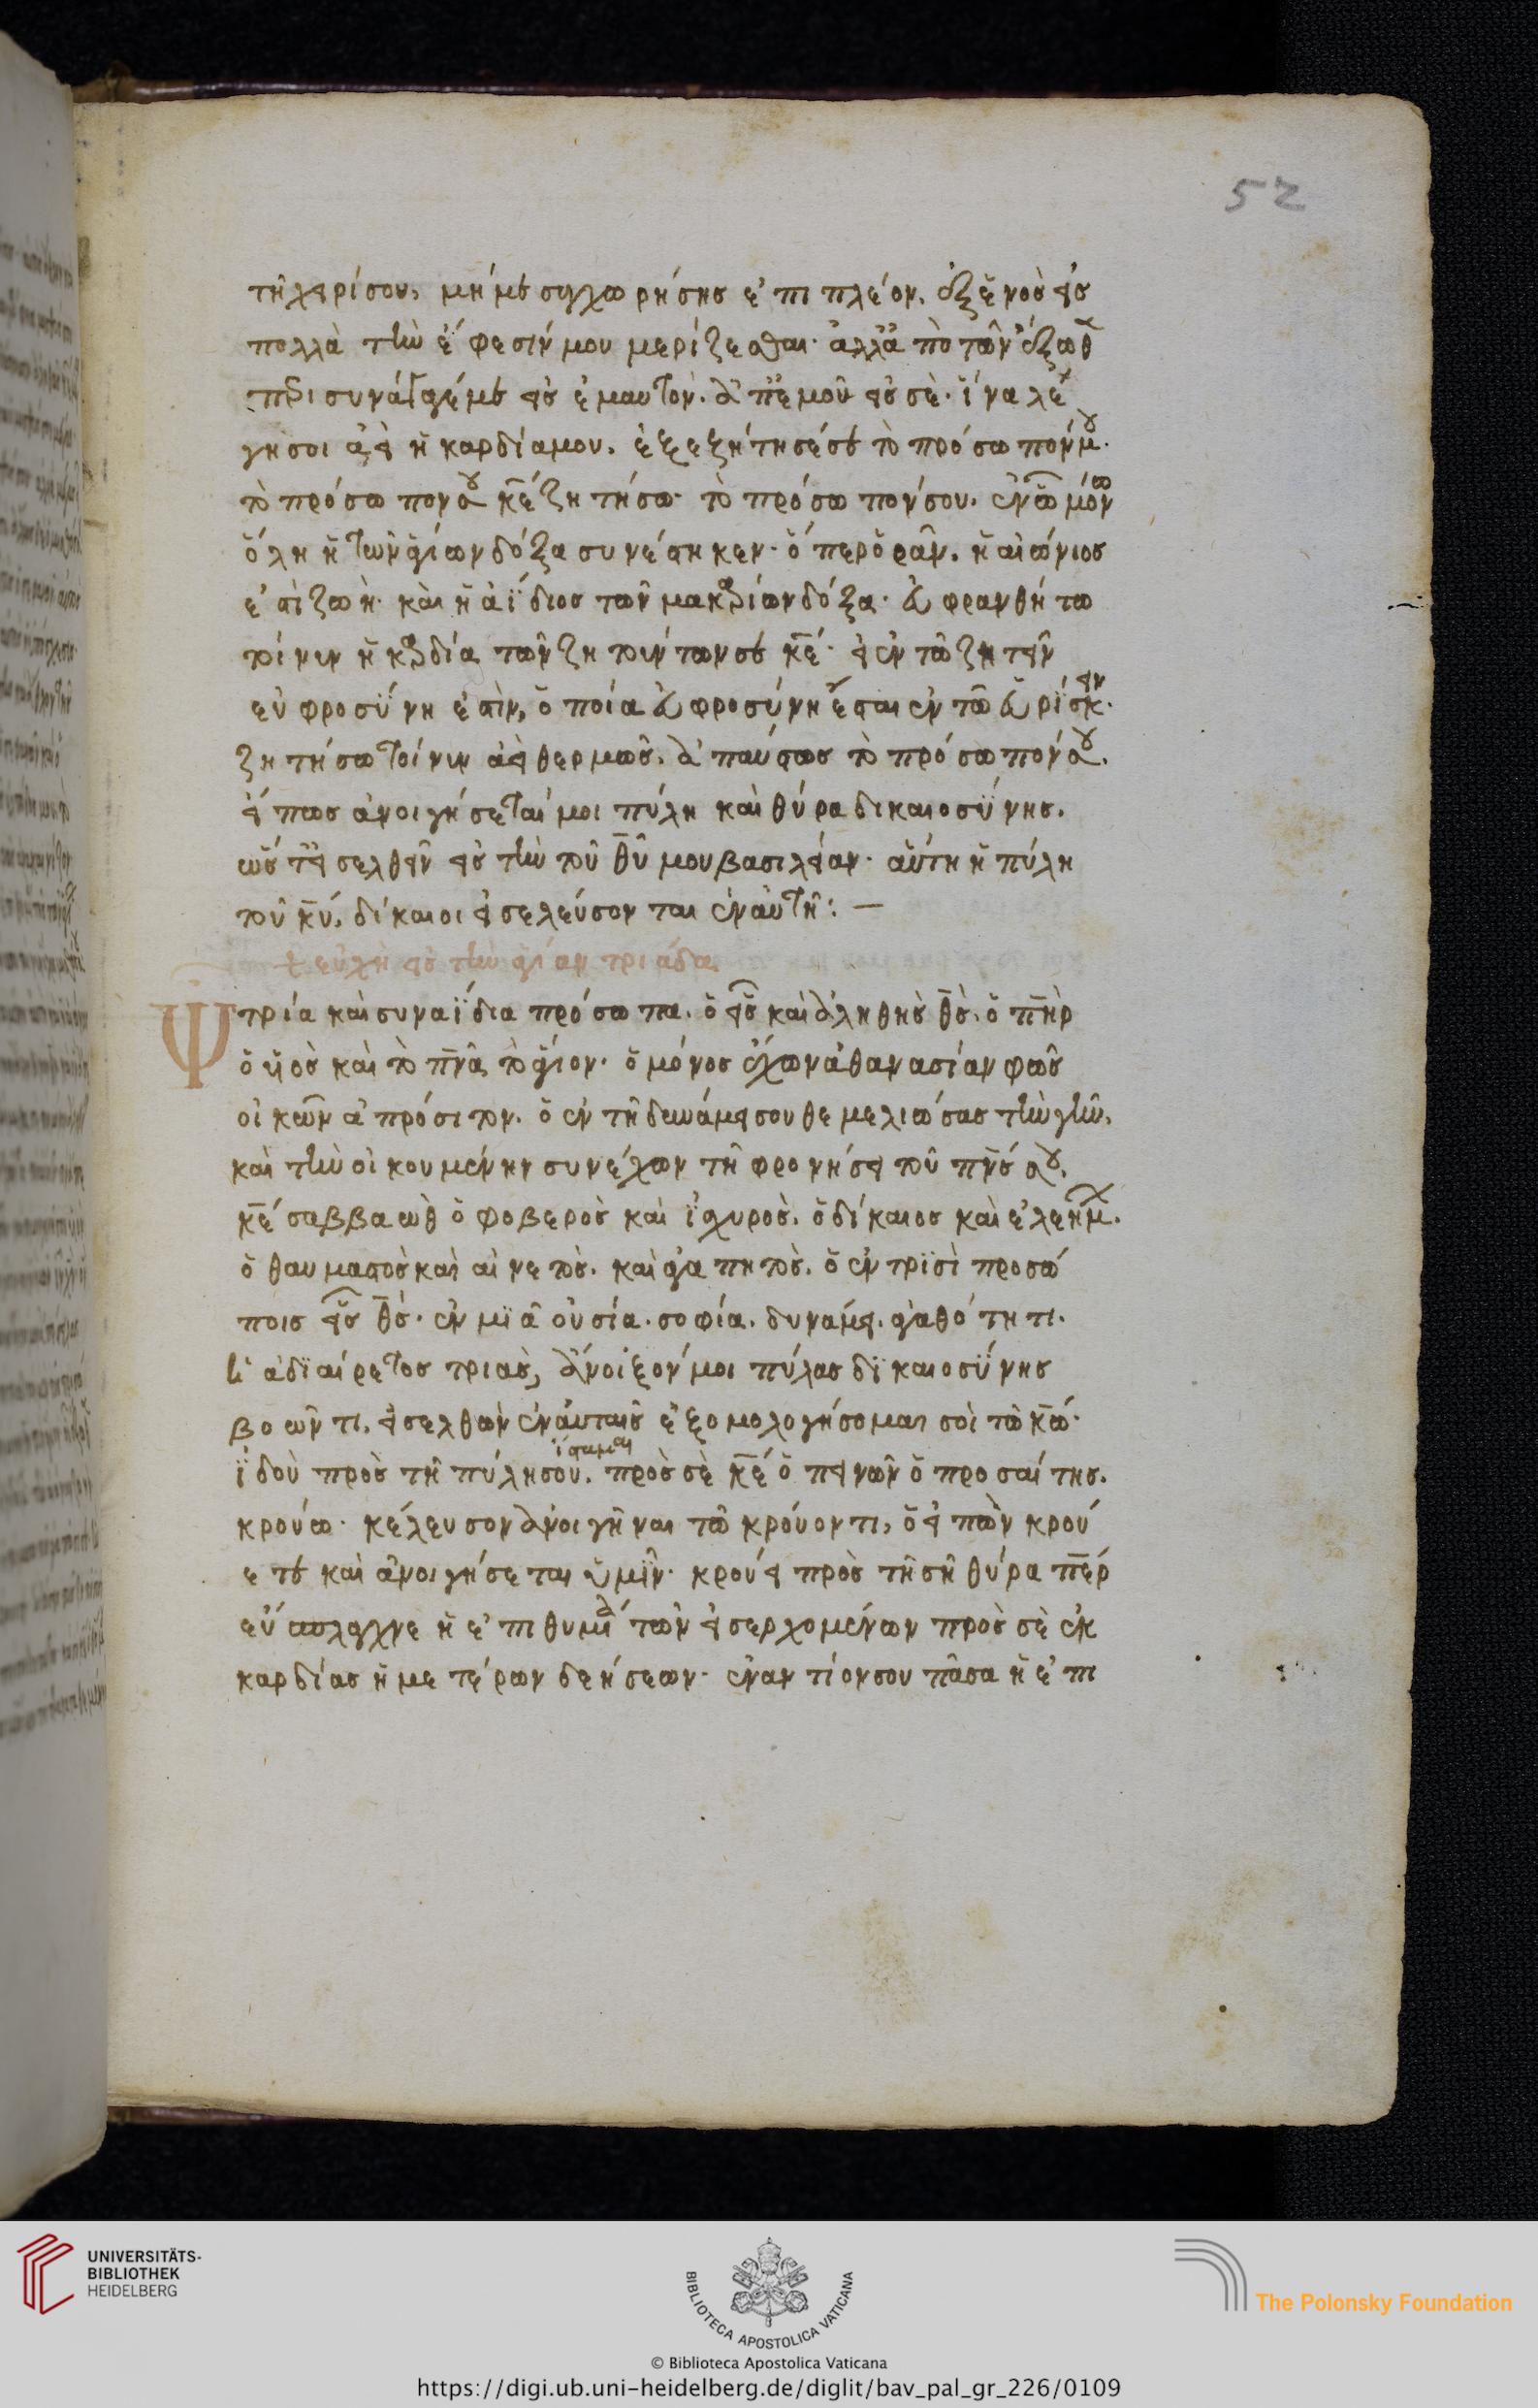 52
τῆ χάριτί σου, μή με συγχωρήσης ἐπιπλέον, ἔξ ἑνὸς εἰς
πολλὰ τὴν ἔφεσίν μου μερίζεσθαι· ἀλλ' ἀπὸ τῶν ἔξωθ
περισύναγέ με εἰς ἐμαυτόν. ἀπ' ἐμοῦ εἰς σὲ· ἵνα λέ
γη σοι ἀεὶ ἡ καρδία μου. ἐξεζήτησέ σε τὸ πρόσωπόν μου.
τὸ πρόσωπόν σου κε̅ ζητήσω· τὸ πρόσωπόν σου. ἐν ὧ μόνω
ὅλη ἡ τῶν ἁγίων δόξα συνέστηκεν· ὅπερ ὁρᾶν, ἡ αἰώνιος
ἐστὶ ζωὴ· καὶ ἡ ἀΐδιος τῶν μακαρίων δόξα· εὐφρανθήτω
τοίνυν ἡ καρδία τῶν ζητούντων σε κε̅· εἰ ἐν τῶ ζητεῖν
εὐφροσΰνη ἐστὶν, ὁποία εὐφροσύνη ἔσται ἐν τῶ εὑρίσκειν.
ζητήσω τοίνυν ἀεὶ θερμῶς. ἀπαύστως τὸ πρόσωπόν σου.
εἴ πως ἀνοιγήσεταί μοι πύλη καὶ θύρα δικαιοσΰνης.
ὥστε εἰσελθεῖν εἰς τὴν τοῦ θυ̅ μου βασιλείαν· αὕτη ἡ πύλη
τοῦ κυ̅, δίκαιοι εἰσελεύσονται ἐν αὐτῆ: —
εὐχὴ εἰς τὴν ἁγίαν τριάδα
τρία καὶ συναΐδια πρόσωπα. ὁ εἷς καὶ ἀληθὴς θς̅. ὁ πη̅ρ
ὁ υἱὸς καὶ τὸ πνα̅ τὸ ἅγιον· ὁ μόνος ἔχων ἀθανασίαν φῶς
οἰκῶν ἀπρόσιτον. ὁ ἐν τῆ δυνάμει σου θεμελιώσας τὴν γῆν,
καὶ τὴν οἰκουμένην συνέχων τῆ φρονήσει τοῦ πνς̅ σου.
κε̅ σαββαὼθ ὁ φοβερὸς καὶ ἰσχυρὸς. ὁ δίκαιος καὶ ἐλεήμων.
ὁ θαυμαστὸς καὶ αἰνετὸς. καὶ ἀγαπητὸς. ὁ ἐν τρισὶ προσώ
ποις εἷς θς̅· ἐν μιᾶ οὐσία. σοφία. δυνάμει. ἀγαθότητι.
ἡ ἀδιαίρετος τριὰς, ἄνοιξόν μοι πύλας δικαιοσΰνης
βοῶντι. εἰσελθὼν ἐν αὐταῖς ἐξομολογήσομαι σοὶ τῶ κω̅·
ἵσταμαι
ἰδοὺ πρὸς τῆ πύλη σου. πρὸς σὲ κε̅ ὁ πεινῶν ὁ προσαίτης.
κρούω· κέλευσον ἀνοιγῆναι τῶ κρούοντι, ὁ εἰπὼν κρού
ετε καὶ ἀνοιγήσεται ὑμῖν· κρούει πρὸς τῆ σῆ θύρα πε̅ρ
εὔσπλαγχνε ἡ ἐπιθυμία τῶν εἰσερχομένων πρὸς σὲ ἐκ
καρδίας ἡμετέρων δεήσεων· ἐναντίον σου πᾶσα ἡ ἐπι
UNIVERSITÄTS-
BIBLIOTHEK
HEIDELBERG
BIBLIOTECA APOSTOLICA VATICANA
The Polonsky Foundation
© Biblioteca Apostolica Vaticana
https://digi.ub.uni-heidelberg.de/diglit/bav_pal_gr_226/0109